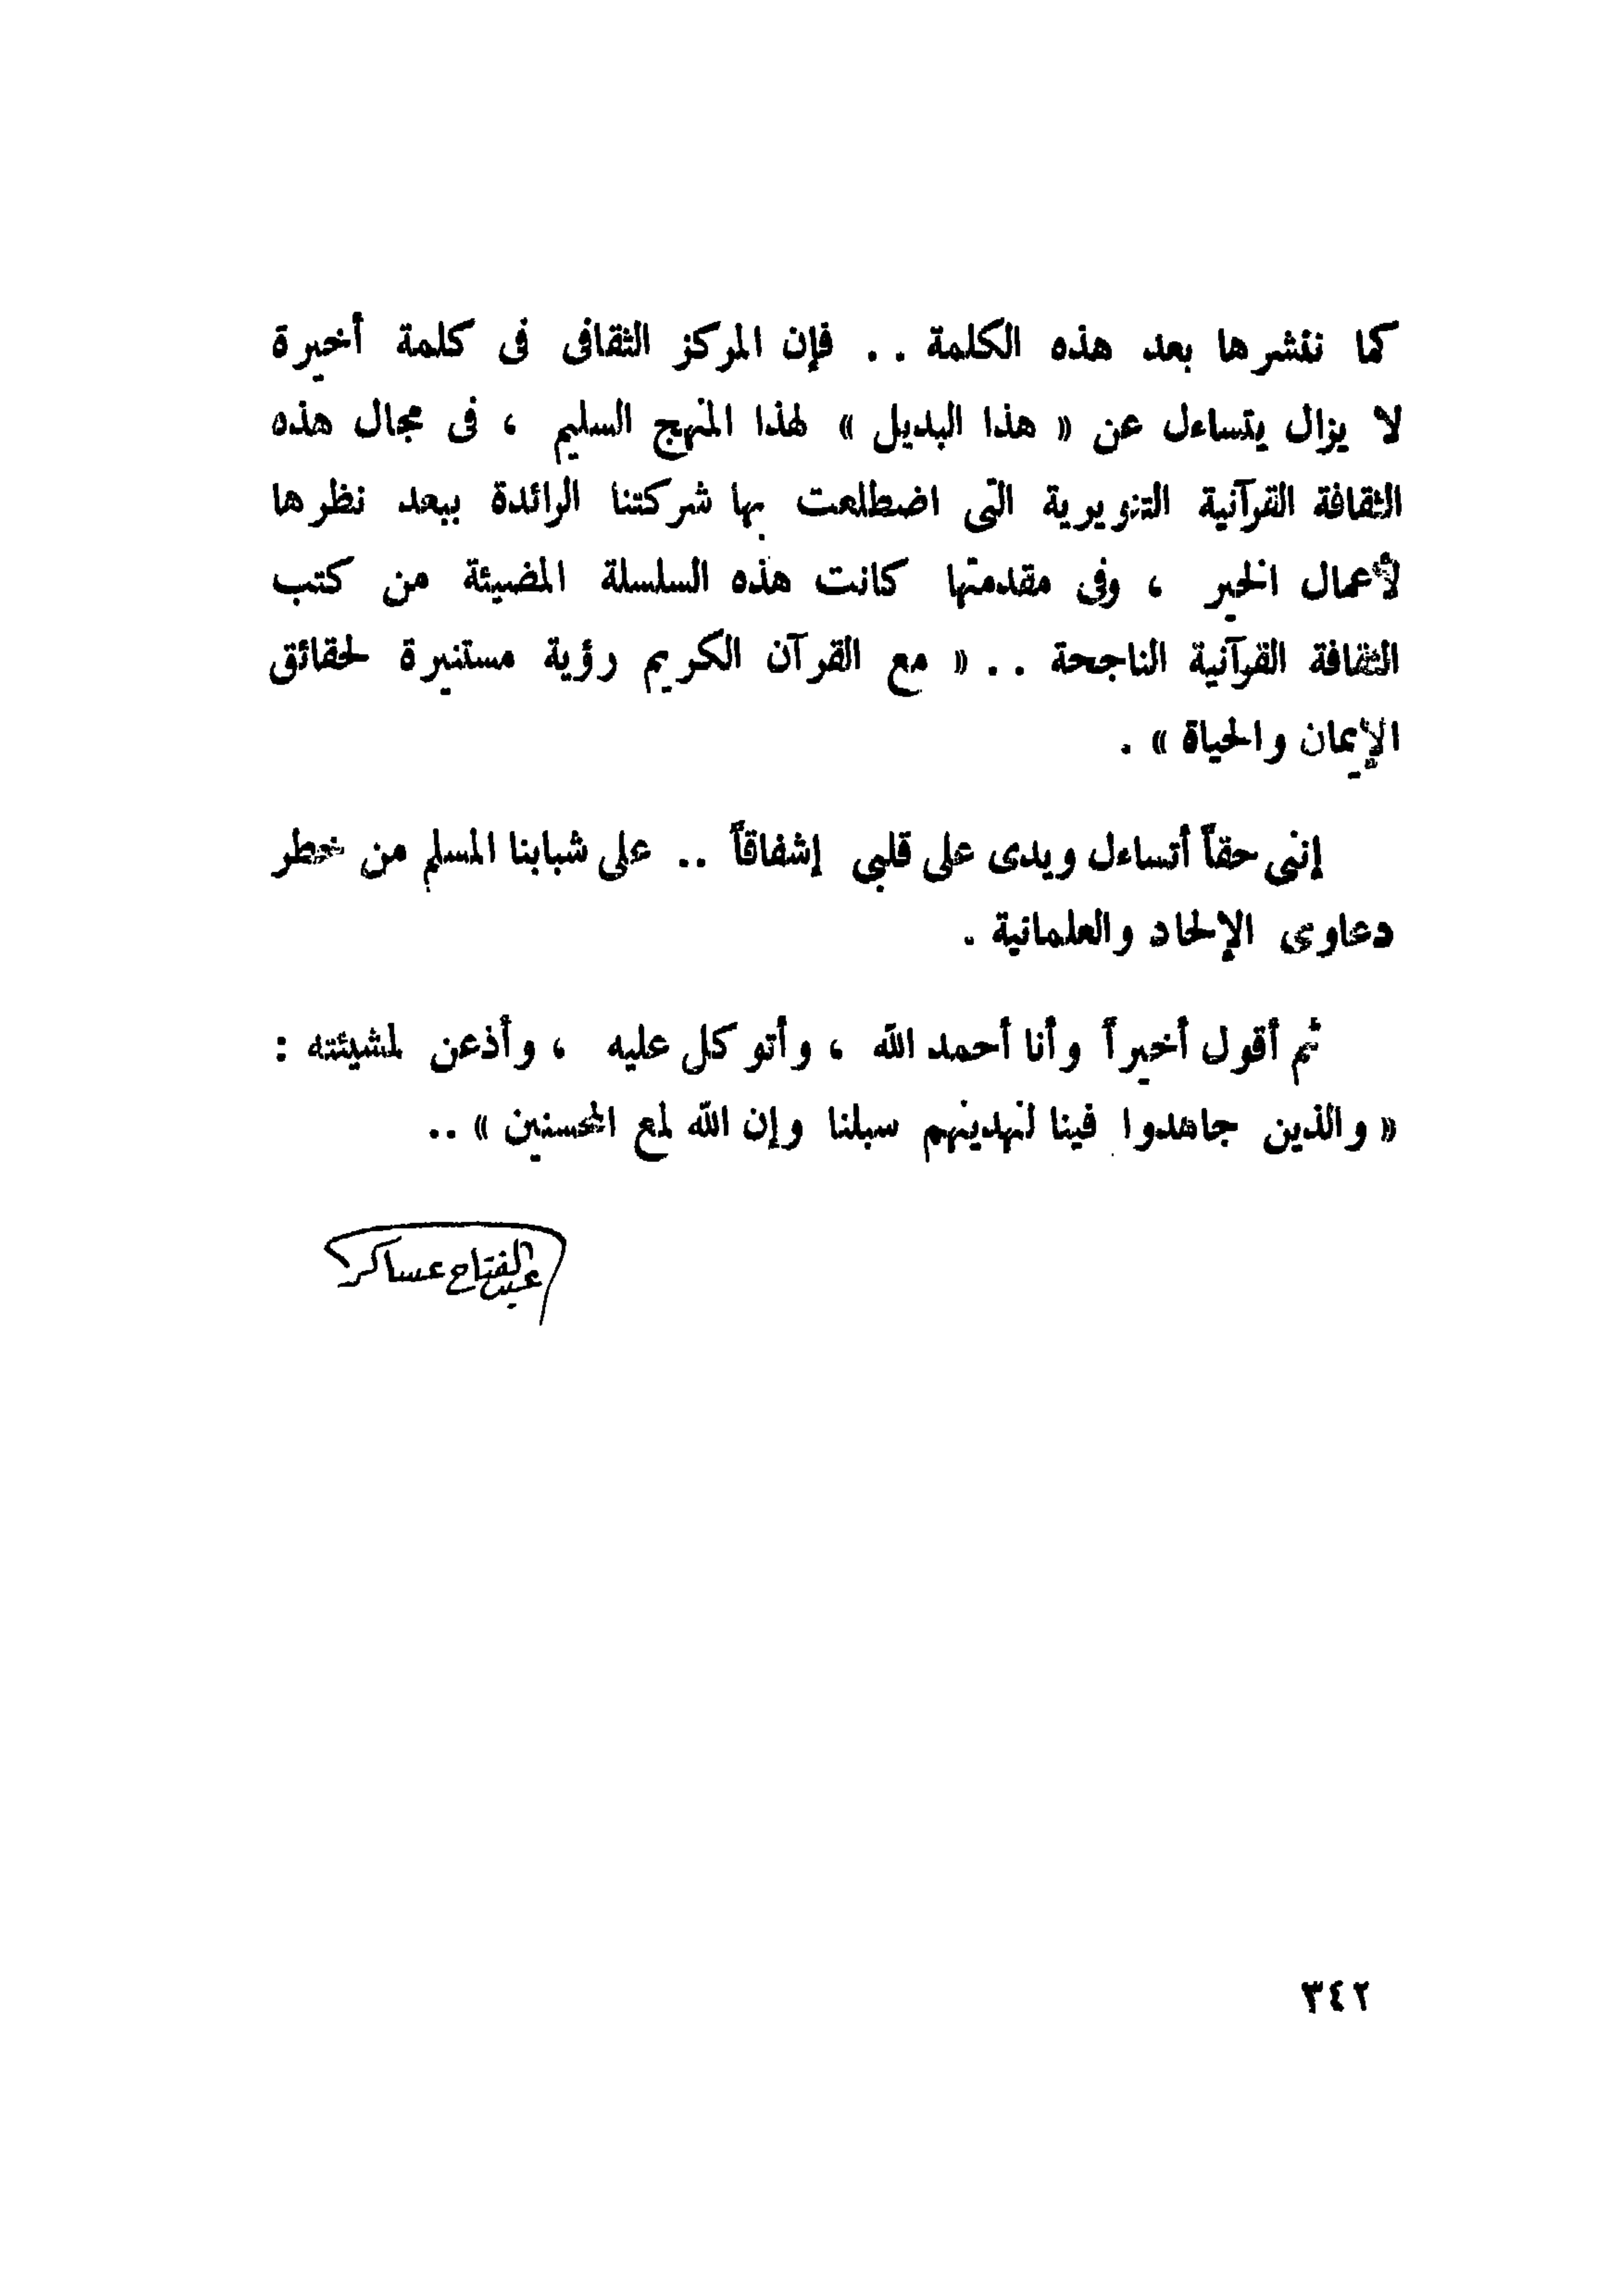 كما ننشرها بعد هذه الكلمة . . فإن المركز الثقافى فى كلمة أخيرة
لا يزال يتساءل عن « هذا البديل » لهذا المنهج السليم ، فى مجال هذه
الثقافة القرآنية التنويرية التى اضطلعت بها شركتنا الرائدة ببعد نظرها
لأعمال الخير ، وفى مقدمتها كانت هذه السلسلة المضيئة من كتب
الثقافة القرآنية الناجحة . . « مع القرآن الكريم رؤية مستنيرة لحقائق
الإيمان والحياة » .
إننى حقاً أتساءل ويدى على قلبى إشفاقاً .. على شبابنا المسلم من خطر
دعاوى الإلحاد والعلمانية .
ثم أقول أخيراً وأنا أحمد الله ، وأتوكل عليه ، وأذعن لمشيئته :
« والذين جاهدوا فينا لنهدينهم سبلنا وإن الله لمع المحسنين » ..
عبد الفتاح عساكر
٣٤٢